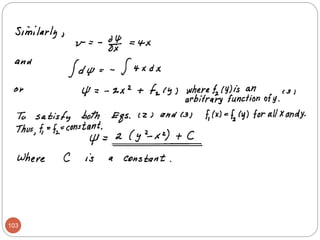 Similarly,
v = - ∂ψ/∂x = 4x
and
∫dψ = - ∫ 4x dx
or ψ = - 2x² + f₂(y) where f₂(y) is an (3)
arbitrary function of y.
To satisfy both Eqs. (2) and (3) f₁(x) = f₂(y) for all x and y.
Thus, f₁ = f₂ = constant.
ψ = 2 (y² - x²) + C
where C is a constant.
103